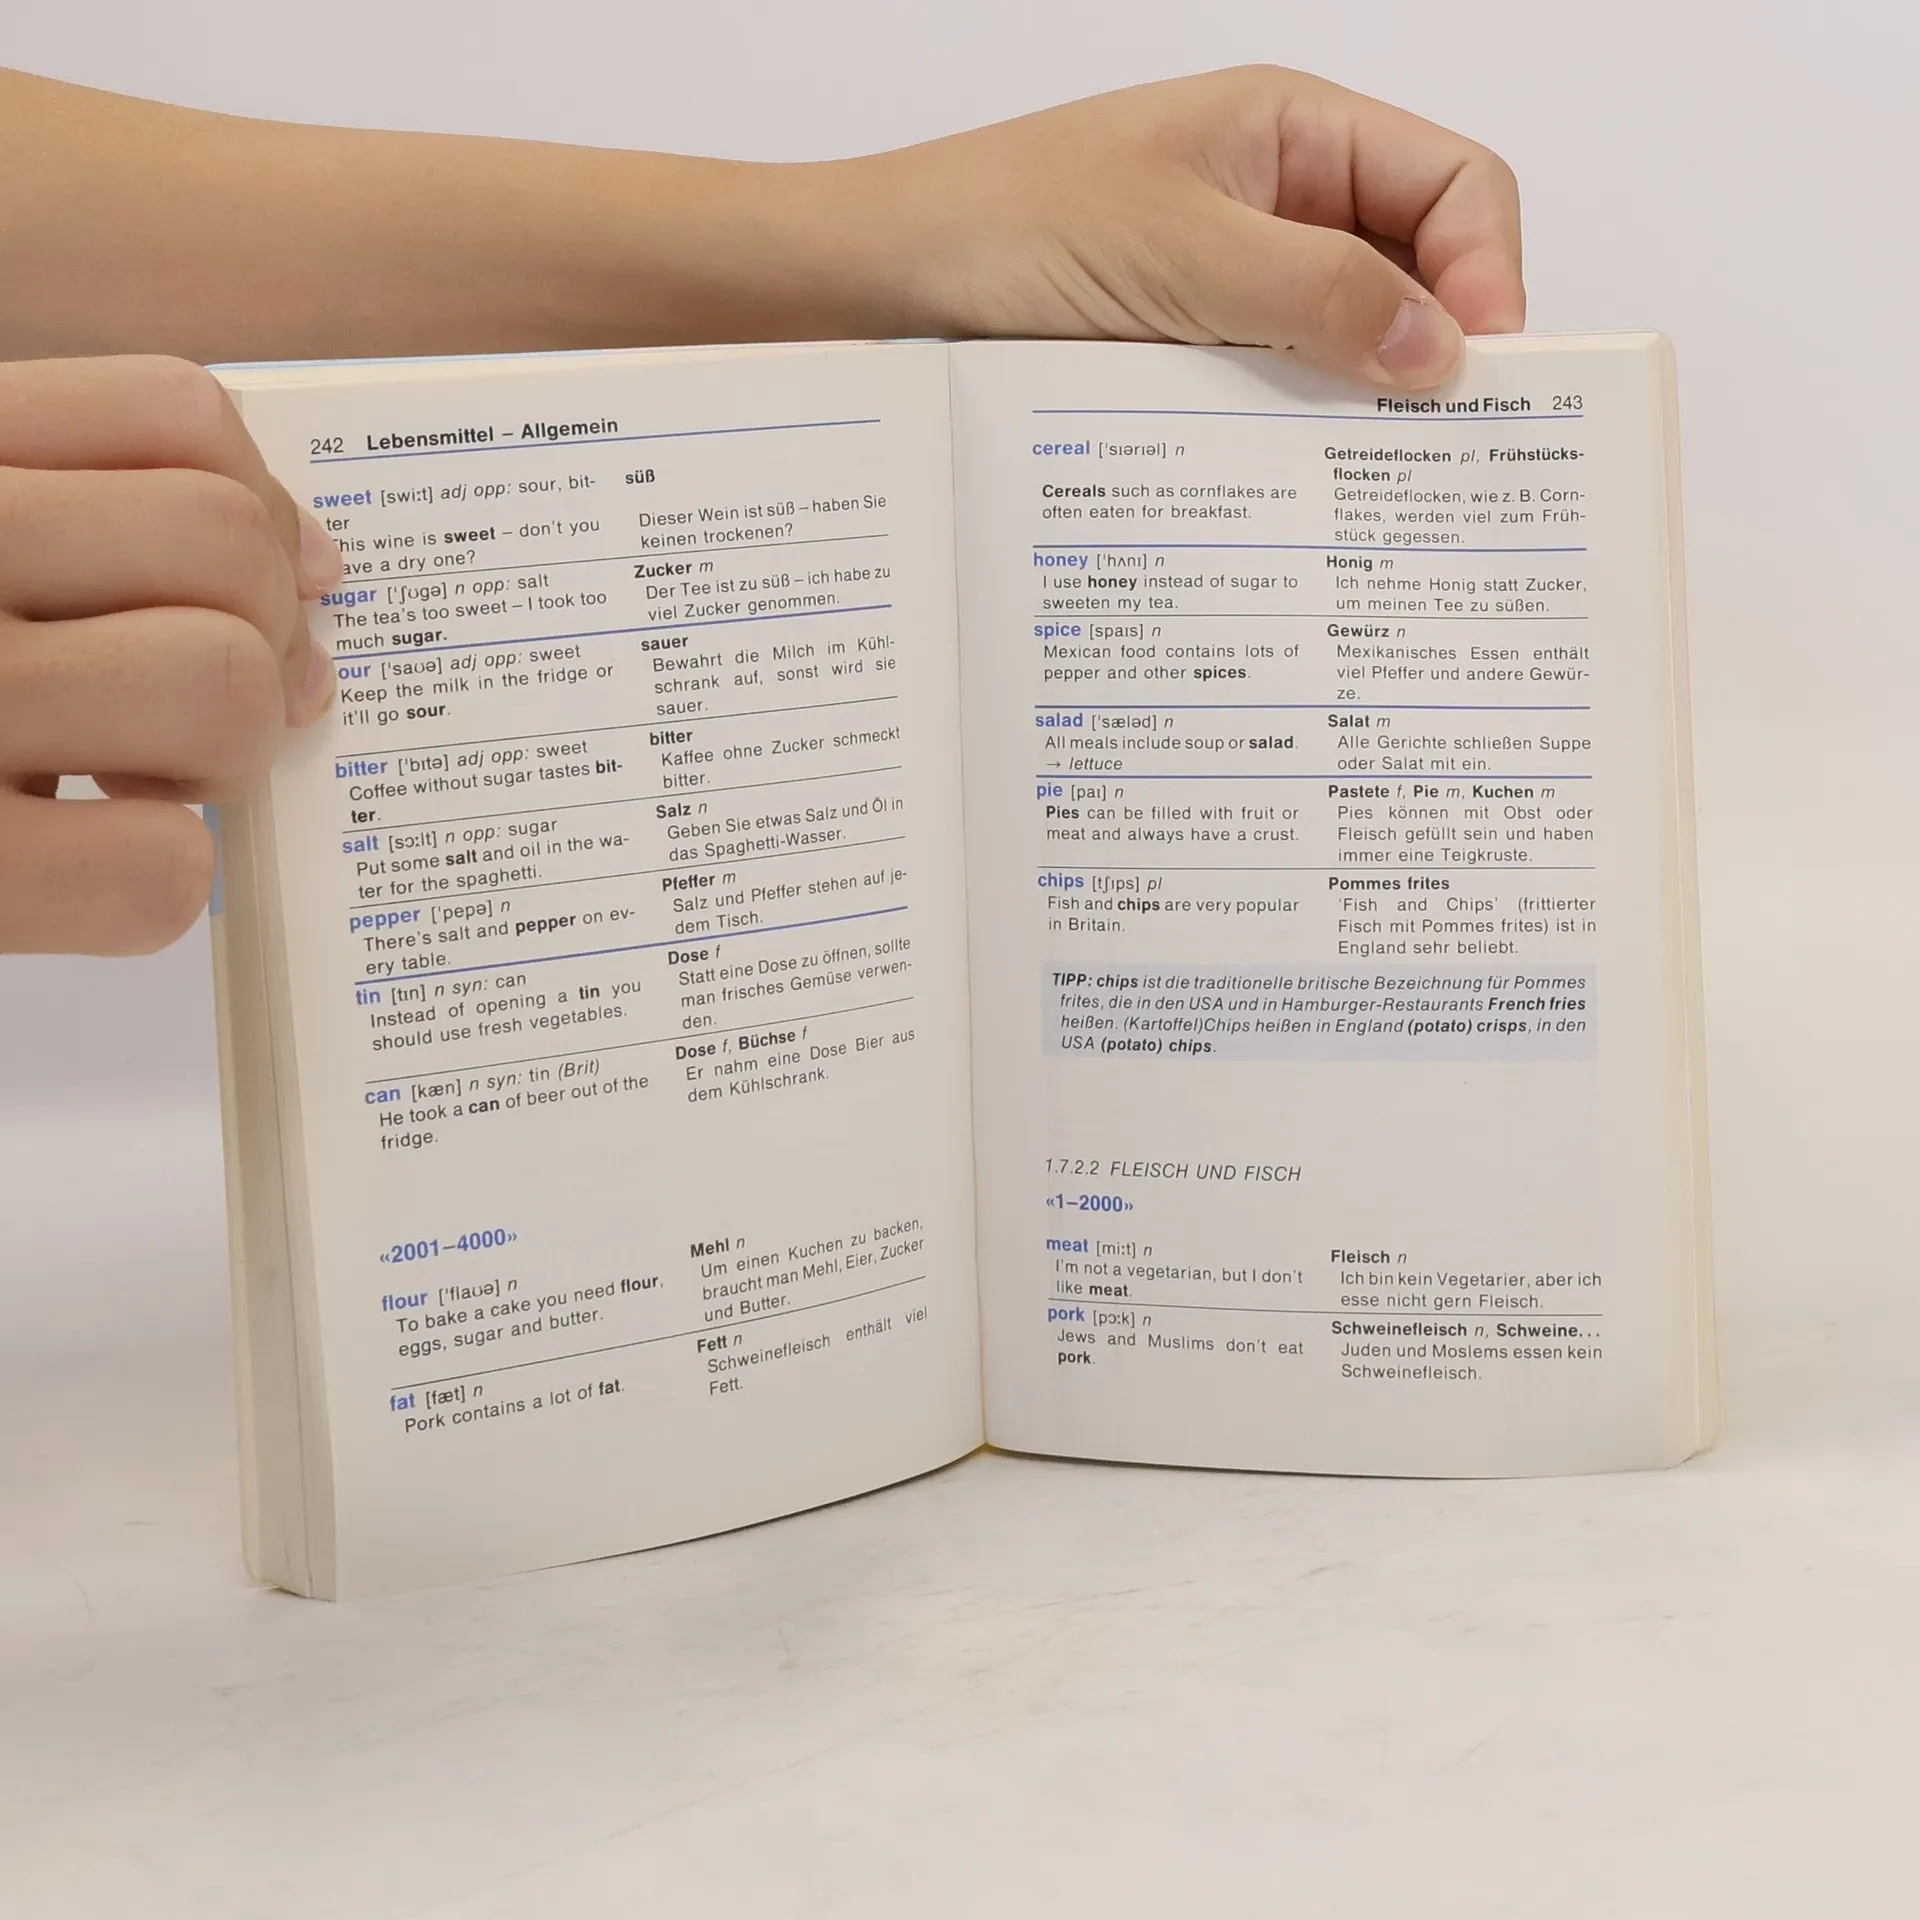 242 Lebensmittel – Allgemein
sweet [swiːt] adj opp: sour, bit-
ter
his wine is sweet – don't you
ave a dry one?
süß
Dieser Wein ist süß – haben Sie
keinen trockenen?
sugar [ˈʃʊgə] n opp: salt
The tea's too sweet – I took too
much sugar.
Zucker m
Der Tee ist zu süß – ich habe zu
viel Zucker genommen.
our [ˈsaʊə] adj opp: sweet
Keep the milk in the fridge or
it'll go sour.
sauer
Bewahrt die Milch im Kühl-
schrank auf, sonst wird sie
sauer.
bitter [ˈbɪtə] adj opp: sweet
Coffee without sugar tastes bit-
ter.
bitter
Kaffee ohne Zucker schmeckt
bitter.
salt [sɔːlt] n opp: sugar
Put some salt and oil in the wa-
ter for the spaghetti.
Salz n
Geben Sie etwas Salz und Öl in
das Spaghetti-Wasser.
pepper [ˈpepə] n
There's salt and pepper on ev-
ery table.
Pfeffer m
Salz und Pfeffer stehen auf je-
dem Tisch.
tin [tɪn] n syn: can
Instead of opening a tin you
should use fresh vegetables.
Dose f
Statt eine Dose zu öffnen, sollte
man frisches Gemüse verwen-
den.
can [kæn] n syn: tin (Brit)
He took a can of beer out of the
fridge.
Dose f, Büchse f
Er nahm eine Dose Bier aus
dem Kühlschrank.
«2001–4000»
flour [ˈflaʊə] n
To bake a cake you need flour,
eggs, sugar and butter.
Mehl n
Um einen Kuchen zu backen,
braucht man Mehl, Eier, Zucker
und Butter.
fat [fæt] n
Pork contains a lot of fat.
Fett n
Schweinefleisch enthält viel
Fett.
Fleisch und Fisch 243
cereal [ˈsɪərɪəl] n
Cereals such as cornflakes are
often eaten for breakfast.
Getreideflocken pl, Frühstücks-
flocken pl
Getreideflocken, wie z. B. Corn-
flakes, werden viel zum Früh-
stück gegessen.
honey [ˈhʌnɪ] n
I use honey instead of sugar to
sweeten my tea.
Honig m
Ich nehme Honig statt Zucker,
um meinen Tee zu süßen.
spice [spaɪs] n
Mexican food contains lots of
pepper and other spices.
Gewürz n
Mexikanisches Essen enthält
viel Pfeffer und andere Gewür-
ze.
salad [ˈsæləd] n
All meals include soup or salad.
→ lettuce
Salat m
Alle Gerichte schließen Suppe
oder Salat mit ein.
pie [paɪ] n
Pies can be filled with fruit or
meat and always have a crust.
Pastete f, Pie m, Kuchen m
Pies können mit Obst oder
Fleisch gefüllt sein und haben
immer eine Teigkruste.
chips [tʃɪps] pl
Fish and chips are very popular
in Britain.
Pommes frites
'Fish and Chips' (frittierter
Fisch mit Pommes frites) ist in
England sehr beliebt.
TIPP: chips ist die traditionelle britische Bezeichnung für Pommes
frites, die in den USA und in Hamburger-Restaurants French fries
heißen. (Kartoffel)Chips heißen in England (potato) crisps, in den
USA (potato) chips.
1.7.2.2 FLEISCH UND FISCH
«1–2000»
meat [miːt] n
I'm not a vegetarian, but I don't
like meat.
Fleisch n
Ich bin kein Vegetarier, aber ich
esse nicht gern Fleisch.
pork [pɔːk] n
Jews and Muslims don't eat
pork.
Schweinefleisch n, Schweine...
Juden und Moslems essen kein
Schweinefleisch.